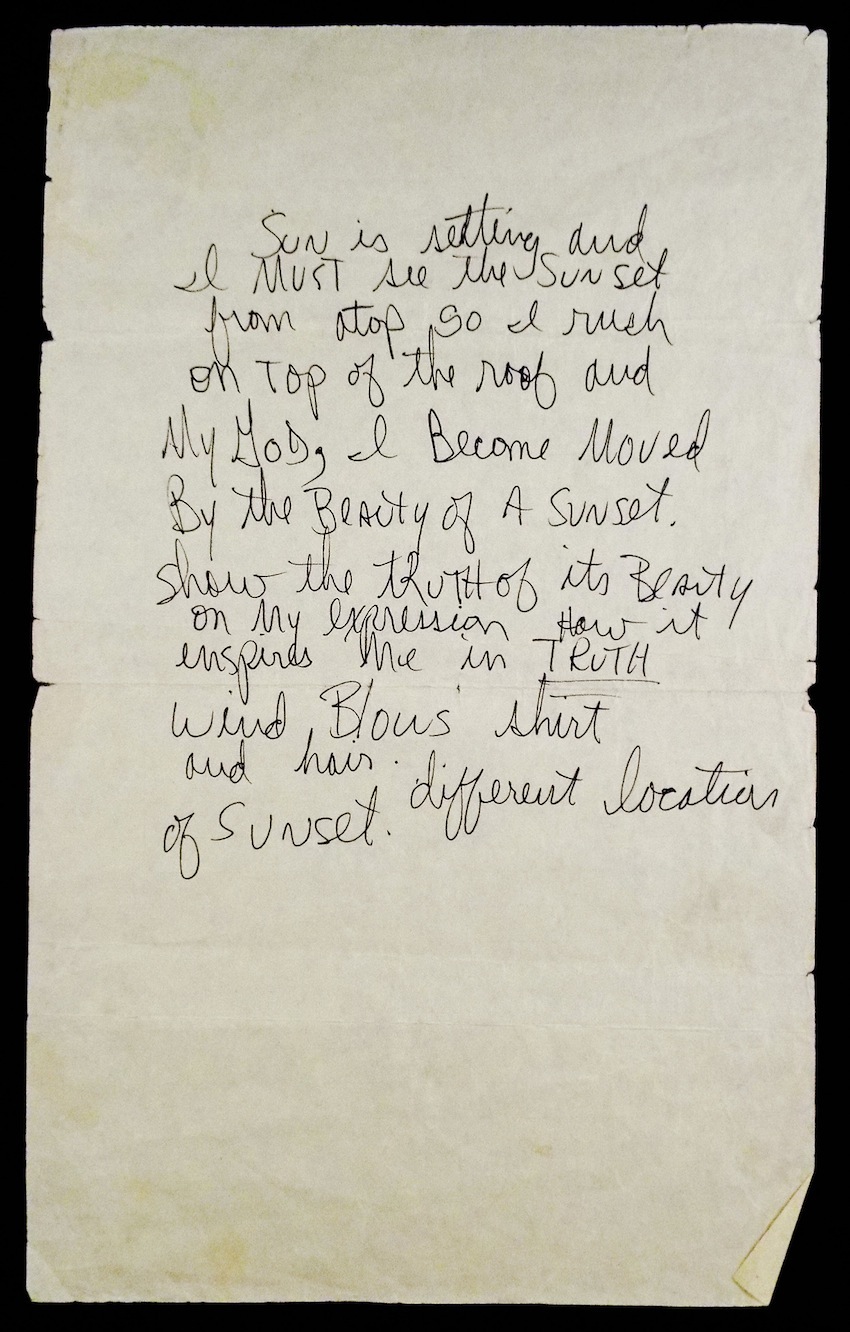 Sun is setting and
I MUST see the Sunset
from atop so I rush
on Top of the roof and
My God, I Become Moved
By the Beauty of A Sunset.
show the tRuTH of its Beauty
on My expression How it
inspires Me in TRUTH
wind Blows shirt
and hair. different location
of Sunset.